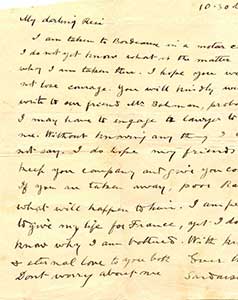 10.30
My darling
I am taken to Bordeaux in a motor c
I do not yet know what is the matter
why I am taken there. I hope you w
not lose courage. Your will kindly
write to our friend Mr. prob
I may have to engage a lawyer to
me. Without knowing any thing I
not say. I do hope my friends
keep your company and give you co
If you are taken away, poor Ra
what will happen to him. I am pe
to give my life for France, yet I do
know why I am bothered. With k
& eternal love to you both
Dont worry about me